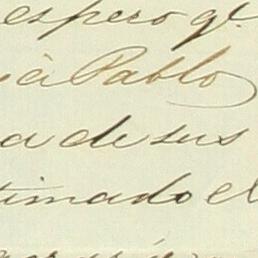 espero qe.
à Pablo
a de sus
timado el